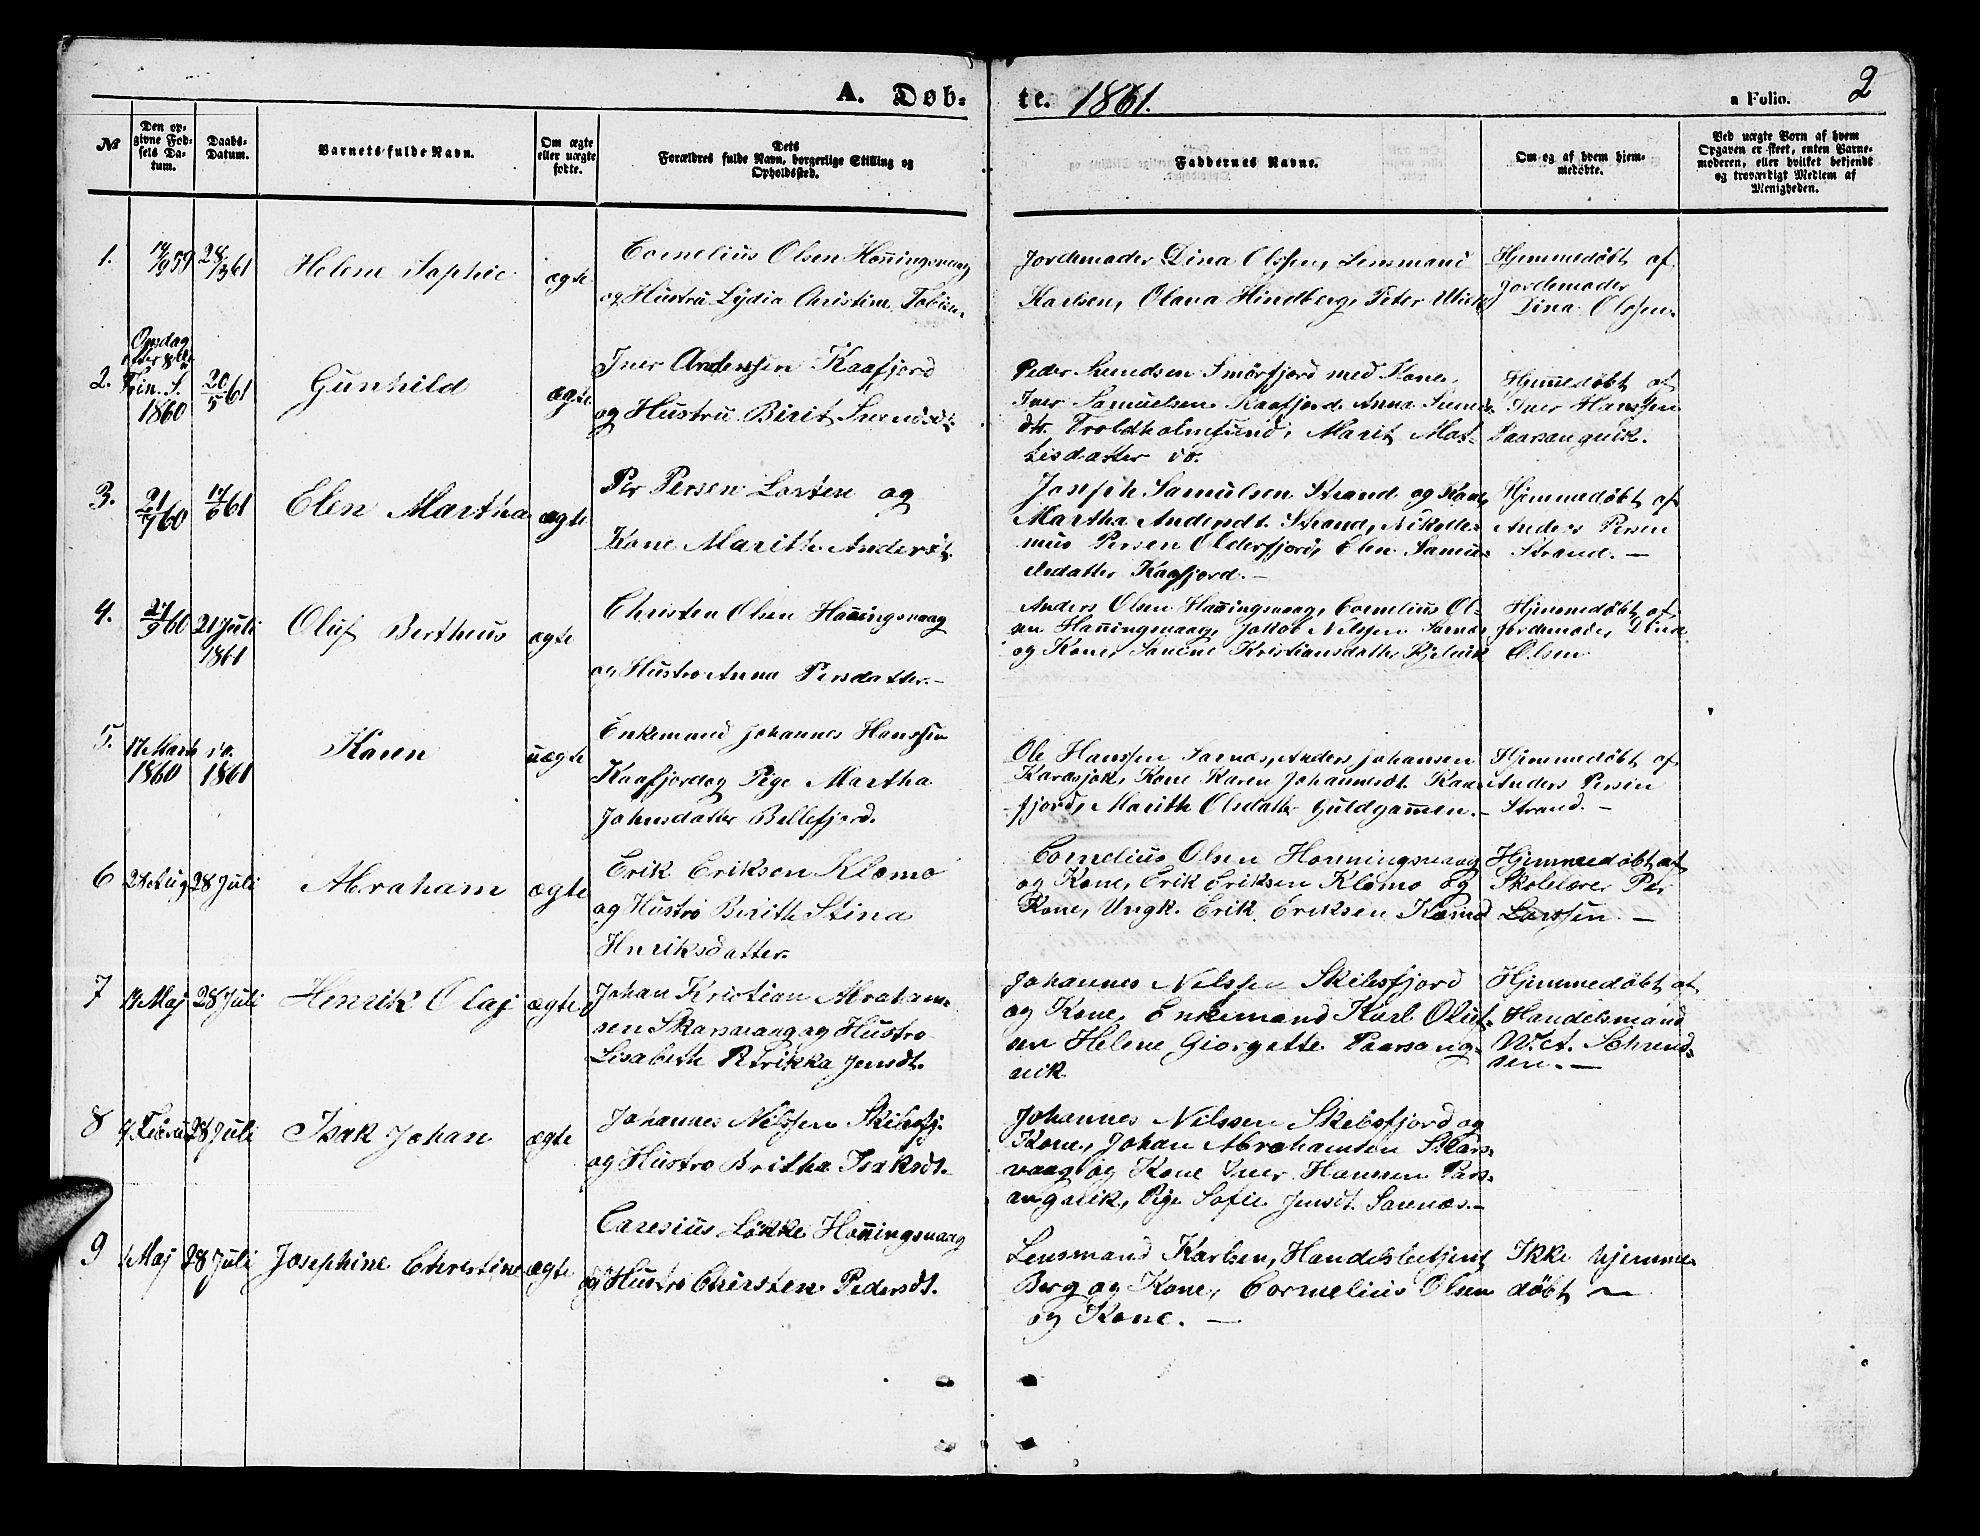 A. Døb-
te. 1861.
a Folio. 2
№
Den op-
givne Fød-
sels Da-
tum.
Daabs-
Datum.
Barnets fulde Navn.
Om ægte
eller uægte
fødte.
Dets
Forældres fulde Navn, borgerlige Stilling og
Opholdssted.
Faddernes Navne.
Om og af hvem hjem-
medøbte.
Ved uægte Børn af hvem
Opgaven er skeet, enten Barne-
moderen, eller hvilket bekjendt
og troværdigt Medlem af
Menigheden.
1.
14/9 59
28/3 61
Helene Sophie
ægte
Cornelius Olsen Honningsvaag
og Hustru Lydia Christine Tobisn.
Jordemoder Dina Olssen, Lensmand
Karlsen, Olava Hindberg, Peter
Hjemmedøbt af
Jordemoder
Dina Olssen.
2.
Onsdag
efter 8de
Trin. S.
1860
20/5 61
Gunhild
ægte
Iver Anderssen Kaafjord
og Hustru Birit Svendsdt.
Peder Svendsen Smörfjord med Kone,
Iver Samuelsen Kaafjord. Anna Svends-
dtr. Troldholmsund, Marit Mat-
tisdatter do.
Hjemmedøbt af
Iver Hanssen
Paarsangvik.
3.
21/7 60
17/6 61
Elen Martha
ægte
Per Persen Porten og
Kone Marith Andersdt.
Joseph Samulsen Strand og Kone,
Martha Andersdt. Strand, Nikode-
mus Persen Olderfjord, Elen Samu-
elsdatter Kaafjord. —
Hjemmedøbt af
Anders Persen
Strand. —
4.
27/9 60
21 Juli
1861
Oluf Bertheus
ægte
Christen Olsen Honningsvaag
og Hustro Anna Persdatter. —
Anders Olsen Honningsvaag, Cornelius Ol-
sen Honningsvaag, Jakob Nilssen Sarnes
og Kone, Sanene Kristiansdatter
Hjemmedøbt af
Jordemoder Dina
Olsen
5.
17 Marts
1860
do.
1861
Karen
uægte
Enkemand Johannes Hanssen
Kaafjord og Pige Martha
Johnsdatter Billefjord.
Ole Hanssen Sarnes, Anders Johansen
Karasjok, Kone Karen Johannesdt. Kaa-
fjord, Marith Olsdatter Guldgammen. —
Hjemmedøbt af
Anders Persen
Strand. —
6
24 Aug
28 Juli
Abraham
ægte
Erik Eriksen Klemo
og Hustro Birith Stina
Henriksdatter.
Cornelius Olsen Honningsvaag
og Kone, Erik Eriksen Klemo og
Kone, Ungk. Erik Eriksen
Hjemmedøbt af
Skolelærer Per
Larssen. —
7
14 Maj
28 Juli
Henrik Olaj
ægte
Johan Kristian Abraham-
sen Skarsvaag og Hustro
Lisabeth Rbrikka Jensdt.
Johannes Nilssen Skibsfjord
og Kone, Enkemand Karl Oluf-
sen Helene Giorgette Paarsang-
vik
Hjemmedøbt af
Handelsmand
W. A. Schrend-
sen. —
8
9 Februar
28 Juli
Isak Johan
ægte
Johannes Nilssen Skibsfj.
og Hustro Britha Isaksdt.
Johannes Nilssen Skibsfjord og
Kone, Johan Abrahamsen Skars-
vaag og Kone Iver Hanssen Pors-
angvik, Pige Sofie Jensdt. Sarnæs. —
9
Maj
28 Juli
Josephine Christine
ægte
Caresius Løkke Honningsvaag
og Hustro Chirsten Pedersdt.
Lensmand Karlsen, Handelsbetjent
Berg og Kone, Cornelius Olsen
og Kone. —
Ikke hjemme-
døbt —